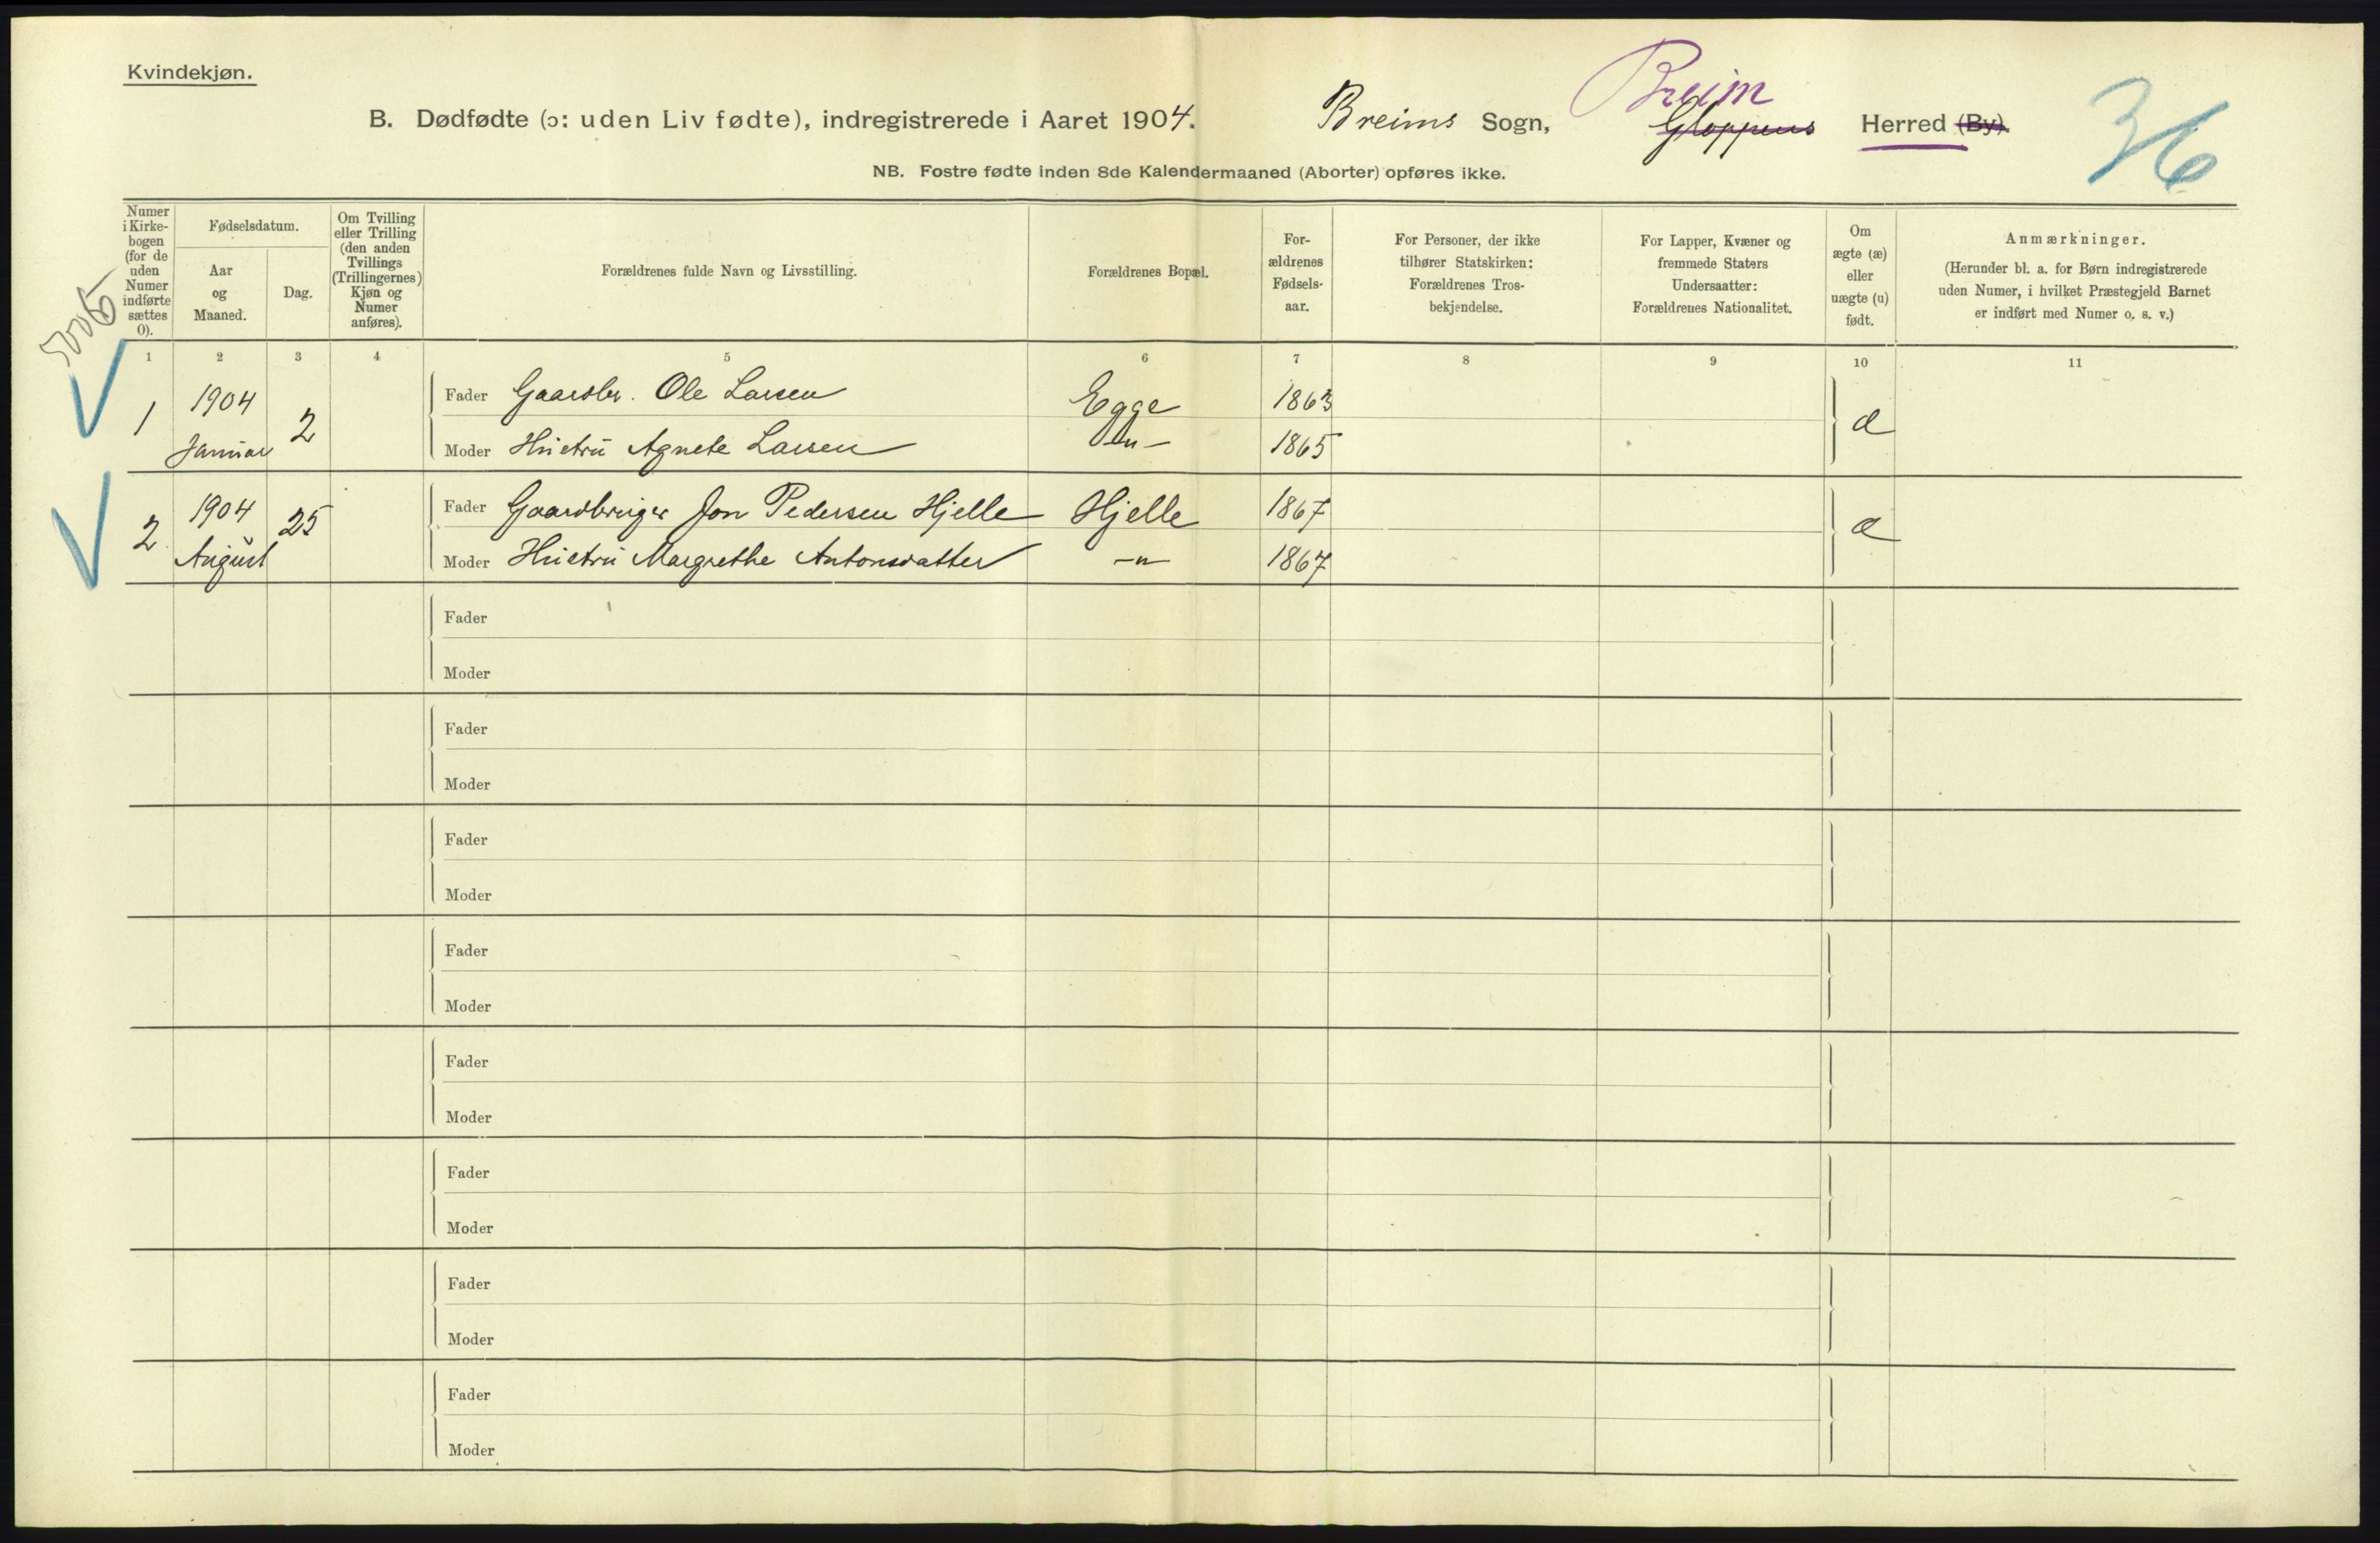 Kvindekjøn.
B. Dødfødte (ɔ: uden Liv fødte), indregistrerede i Aaret 1904. Breims Sogn, Breim Gloppens Herred (By).
36
NB. Fostre fødte inden 8de Kalendermaaned (Aborter) opføres ikke.
Numer i Kirke-bogen (for de uden Numer indførte sættes 0).
Fødselsdatum.
Aar og Maaned.
Dag.
Om Tvilling eller Trilling (den anden Tvillings (Trillingernes) Kjøn og Numer anføres).
Forældrenes fulde Navn og Livsstilling.
Forældrenes Bopæl.
For-ældrenes Fødsels-aar.
For Personer, der ikke tilhører Statskirken: Forældrenes Tros-bekjendelse.
For Lapper, Kvæner og fremmede Staters Undersaatter: Forældrenes Nationalitet.
Om ægte (æ) eller uægte (u) født.
Anmærkninger.
(Herunder bl. a. for Børn indregistrerede uden Numer, i hvilket Præstegjeld Barnet er indført med Numer o. s. v.)
1 2 3 4 5 6 7 8 9 10 11
1 1904 Januar 2
Fader Gaardbr. Ole Larsen Egge 1863 æ
Moder Hustru Agnete Larsen –"– 1865
2 1904 August 25
Fader Gaardbruger Jon Pedersen Hjelle Hjelle 1867 æ
Moder Hustru Margrethe Antonsdatter –"– 1867
Fader
Moder
Fader
Moder
Fader
Moder
Fader
Moder
Fader
Moder
Fader
Moder
Fader
Moder
Fader
Moder